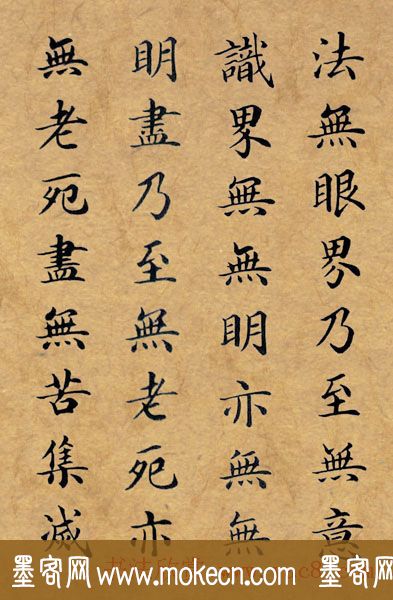 法無眼界乃至無意
識界無無明亦無無
明盡乃至無老死亦
無老死盡無苦集滅
墨客网 www.mokecn.com 墨客网